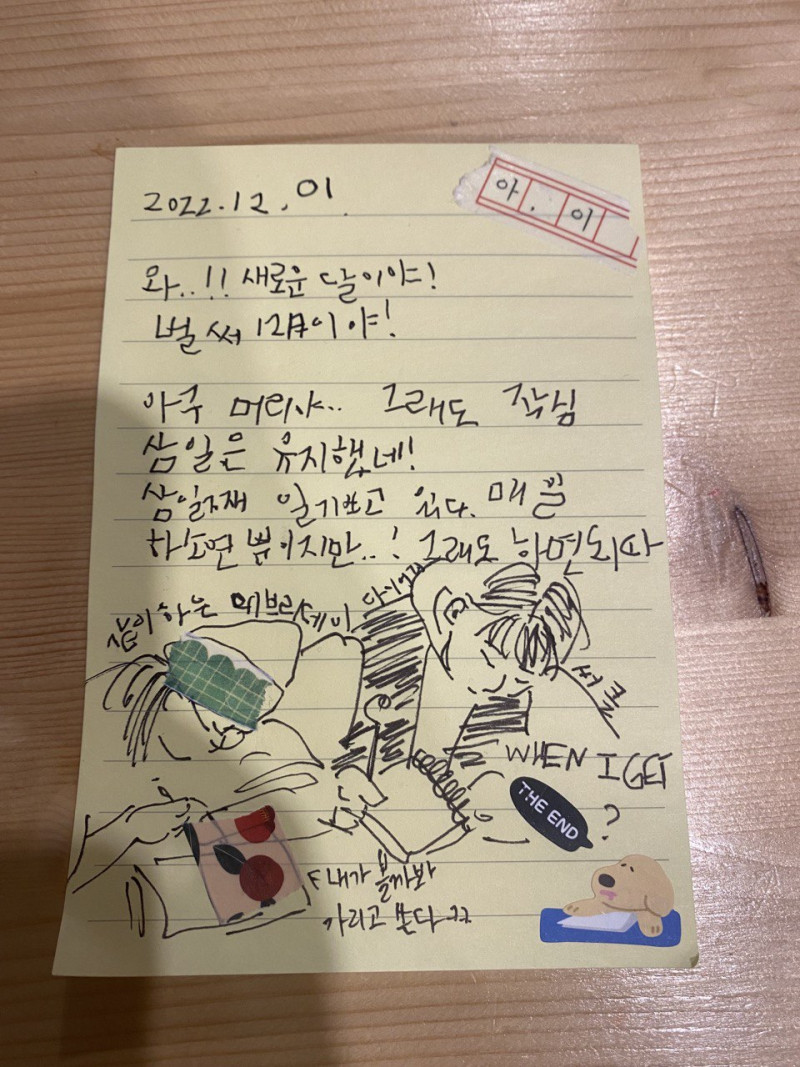 2022.12.01.
아.이
와..!! 새로운 달이야!
벌써 12月이야!
아구 머리야.. 그래도 작심
삼일은 유지했네!
삼일째 일기쓰고 있다. 매일
하노면 뿐이지만..! 그래도 하면되따
하은 에브리데이 다이어리
써클
WHEN I GET
THE END
?
내가 볼까봐
가리고 쓴다 ㅋㅋ